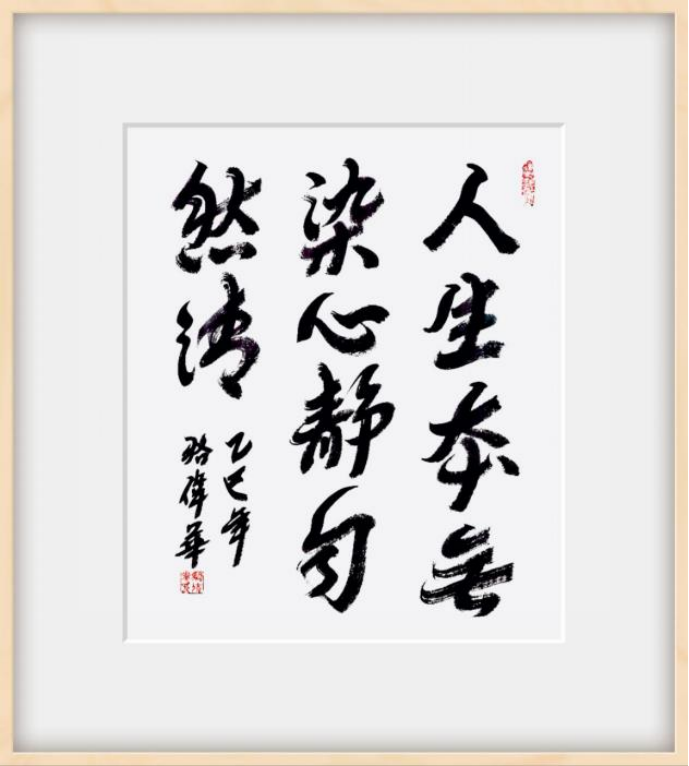 人生本无
染心静自
然清
乙巳年
骆伟华